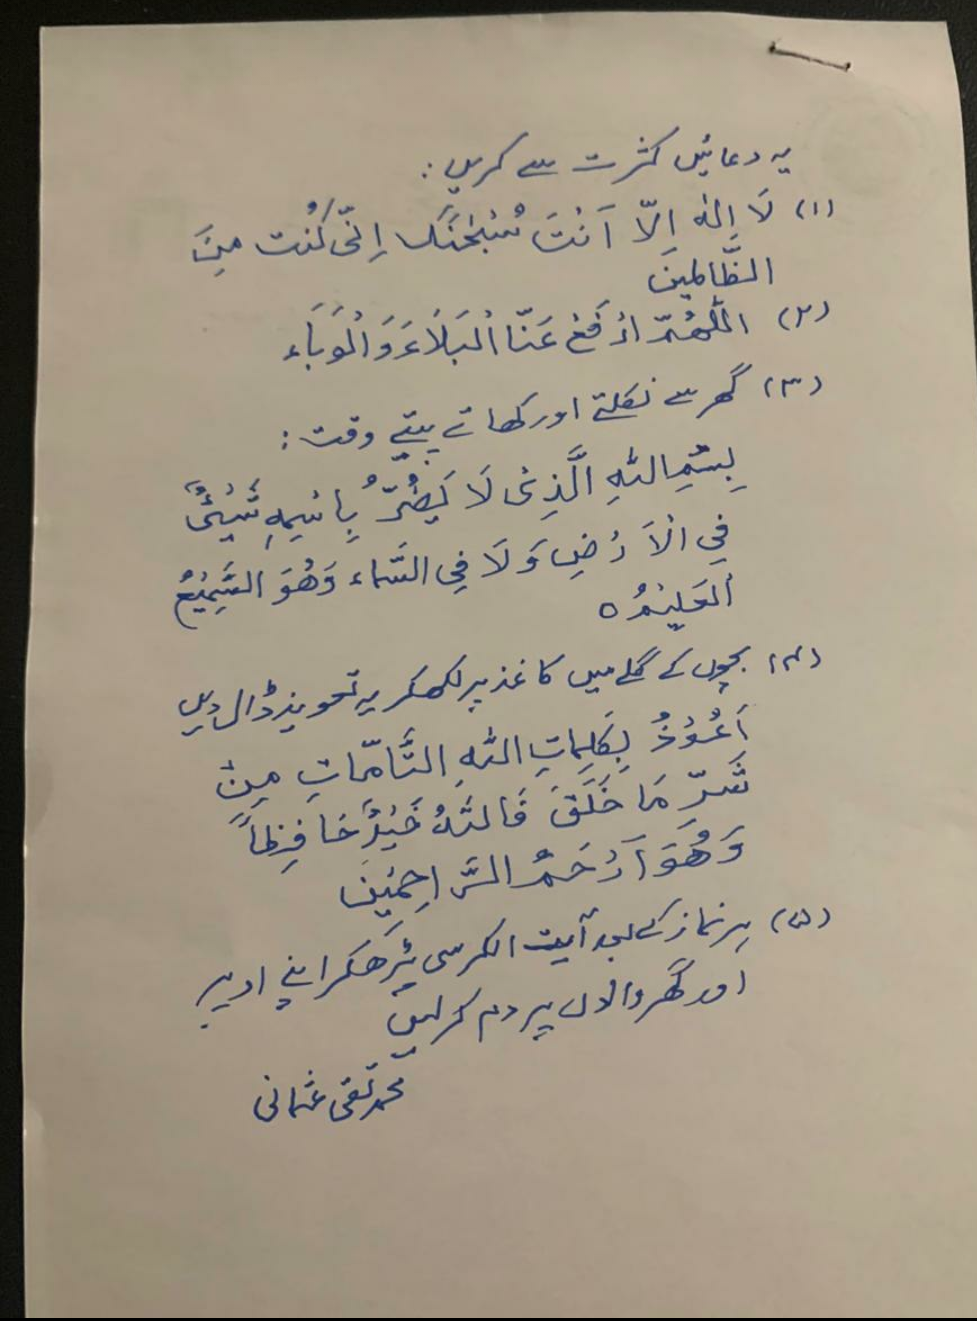 یہ دعائیں کثرت سے کریں:
(۱) لَا اِلٰہَ اِلّا اَنْتَ سُبْحٰنَکَ اِنِّی کُنْت مِنَ
الظَّالِمِینَ
(۲) اللّٰھُمّ ادْفَعْ عَنَّا الْبَلَاءَ وَالْوَبَاء
(۳) گھر سے نکلتے اور کھاتے پیتے وقت:
بِسْمِ اللہِ الَّذِی لَا یَضُرُّ بِاسْمِہِ شَیْئٌ
فِی الْاَرْضِ وَلَا فِی السَّماء وَھُوَ السَّمِیْعُ
الْعَلِیْمُ ہ
(۴) بچوں کے گلے میں کاغذ پر لکھکر یہ تعویذ ڈال دیں
اَعُوْذُ بِکَلِمَاتِ اللہِ التَّامَّاتِ مِنْ
شَرِّ مَا خَلَقَ فَاللہُ خَیْرٌ حَافِظاً
وَھُوَ اَرْحَمُ الرَّاحِمِیْنَ
(۵) ہر نماز کے بعد آیت الکرسی پڑھکر اپنے اوپر
اور گھر والوں پر دم کرلیں
محمد تقی عثمانی